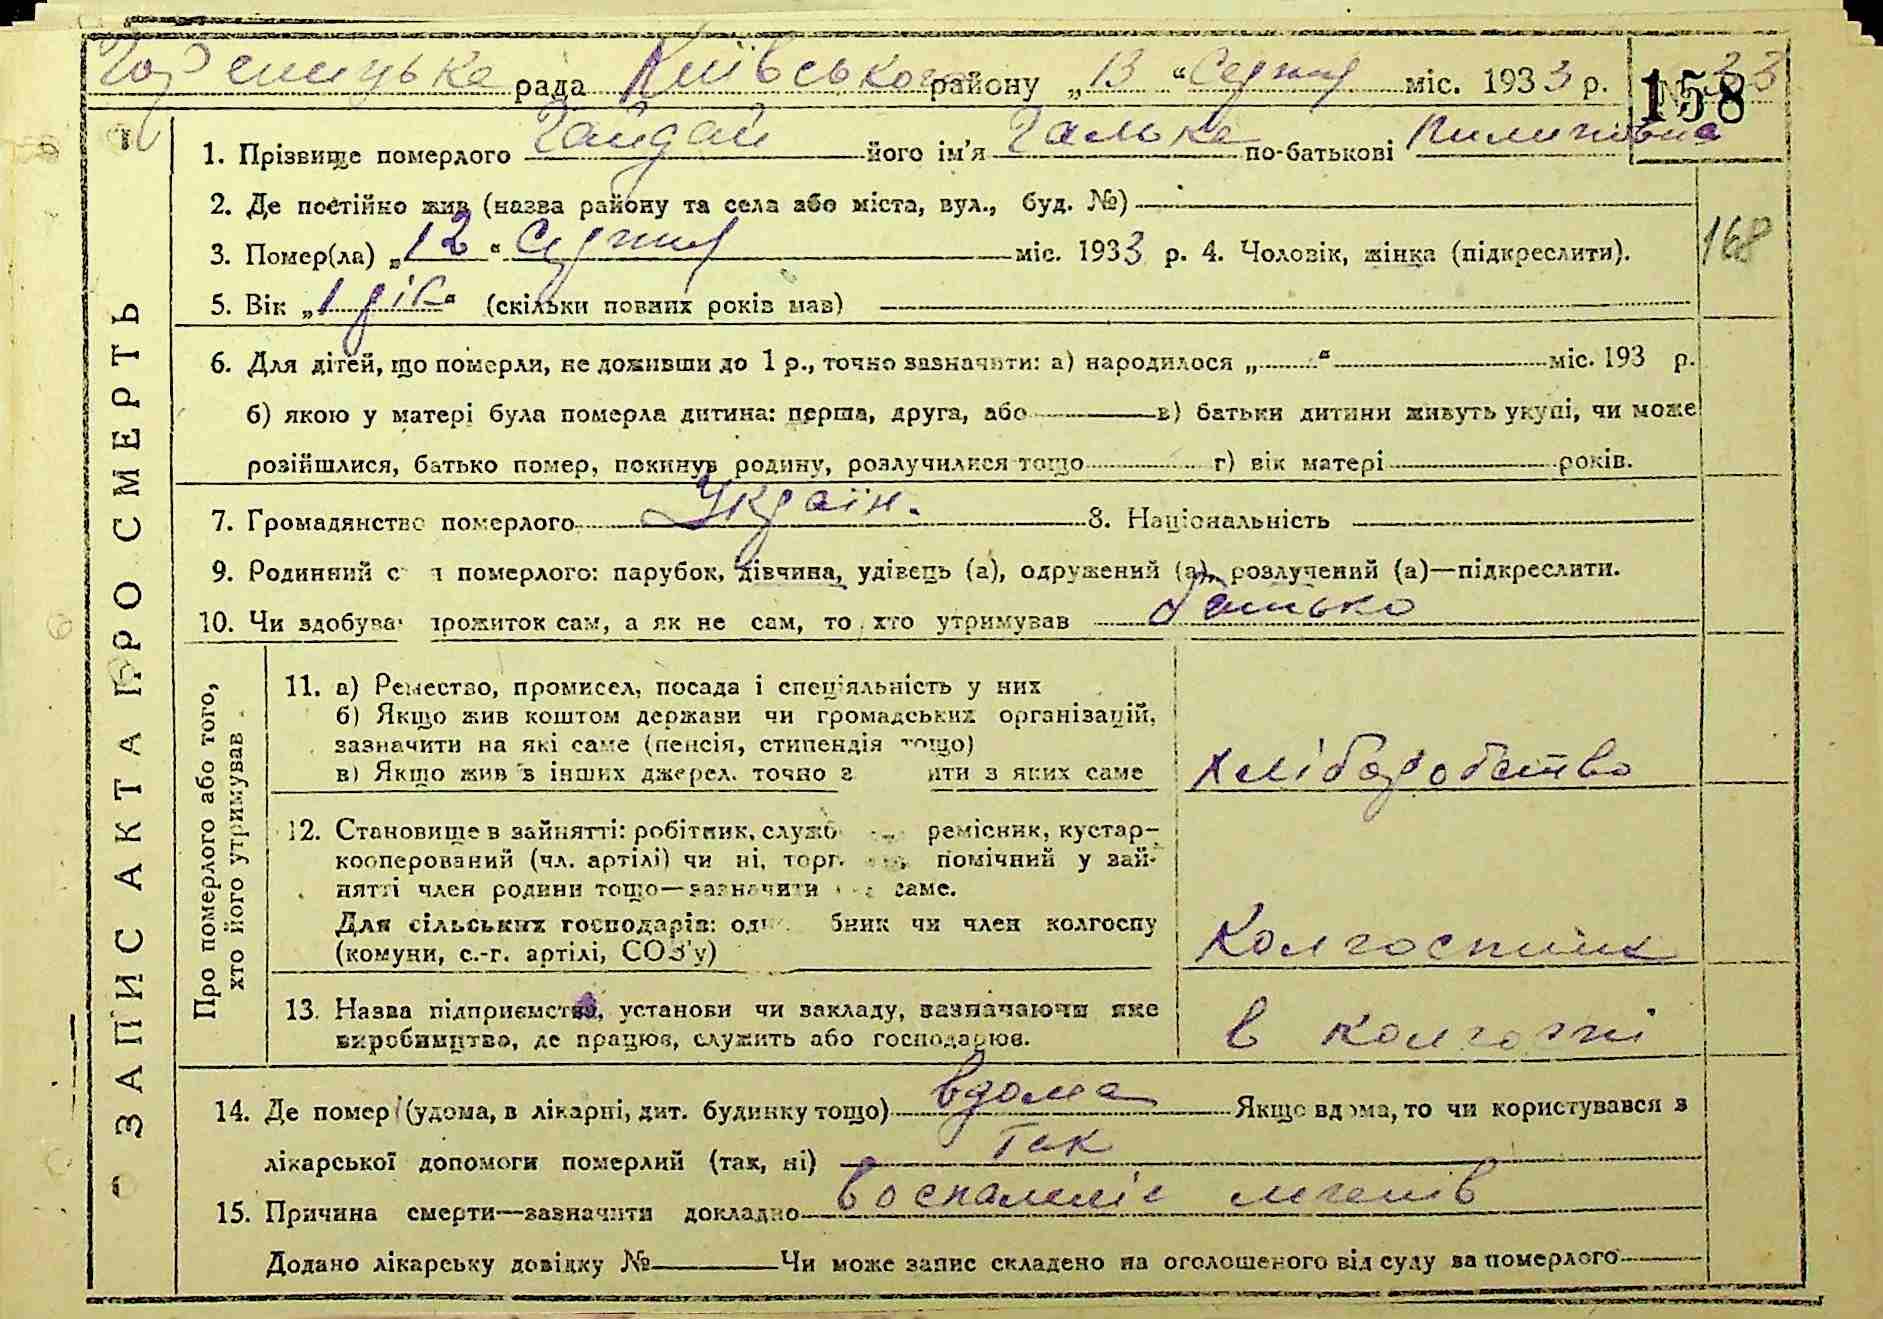 Гореницьке рада Київського району „13“ Серпня міс. 1933 р. № 33
158
1. Прізвище померлого Гайдай його ім'я Галька по-батькові Пилиповна
2. Де постійно жив (назва району та села або міста, вул., буд. №)
3. Помер(ла) „12“ Серпня міс. 1933 р. 4. Чоловік, жінка (підкреслити).
168
5. Вік „1 рік“ (скільки повних років мав)
6. Для дітей, що померли, не доживши до 1 р., точно зазначити: а) народилося „ “ міс. 193 р.
б) якою у матері була померла дитина: перша, друга, або в) батьки дитини живуть укупі, чи може
розійшлися, батько помер, покинув родину, розлучилися тощо г) вік матері років.
7. Громадянство померлого Україн. 8. Національність
9. Родинний с я померлого: парубок, дівчина, удівець (а), одружений (а), розлучений (а)—підкреслити.
10. Чи здобува прожиток сам, а як не сам, то хто утримував батько
ЗАПИС АКТА ПРО СМЕРТЬ
Про померлого або того,
хто його утримував
11. а) Ремество, промисел, посада і спеціяльність у них
б) Якщо жив коштом держави чи громадських організацій,
зазначити на які саме (пенсія, стипендія тощо)
в) Якщо жив з інших джерел, точно з ити з яких саме
хліборобство
12. Становище в зайнятті: робітник, служб ремісник, кустар-
кооперований (чл. артілі) чи ні, торг. помічний у зай-
нятті член родини тощо—зазначити саме.
Для сільських господарів: од бник чи член колгоспу
(комуни, с.-г. артілі, СОЗ'у)
Колгоспник
13. Назва підприємства, установи чи закладу, зазначаючи яке
виробництво, де працює, служить або господарює.
в колгоспі
14. Де помер (удома, в лікарні, дит. будинку тощо) вдома Якщо вдома, то чи користувався з
лікарської допомоги померлий (так, ні) Так
15. Причина смерти—зазначити докладно воспаленіє легенів
Додано лікарську довідку № Чи може запис складено на оголошеного від суду за померлого